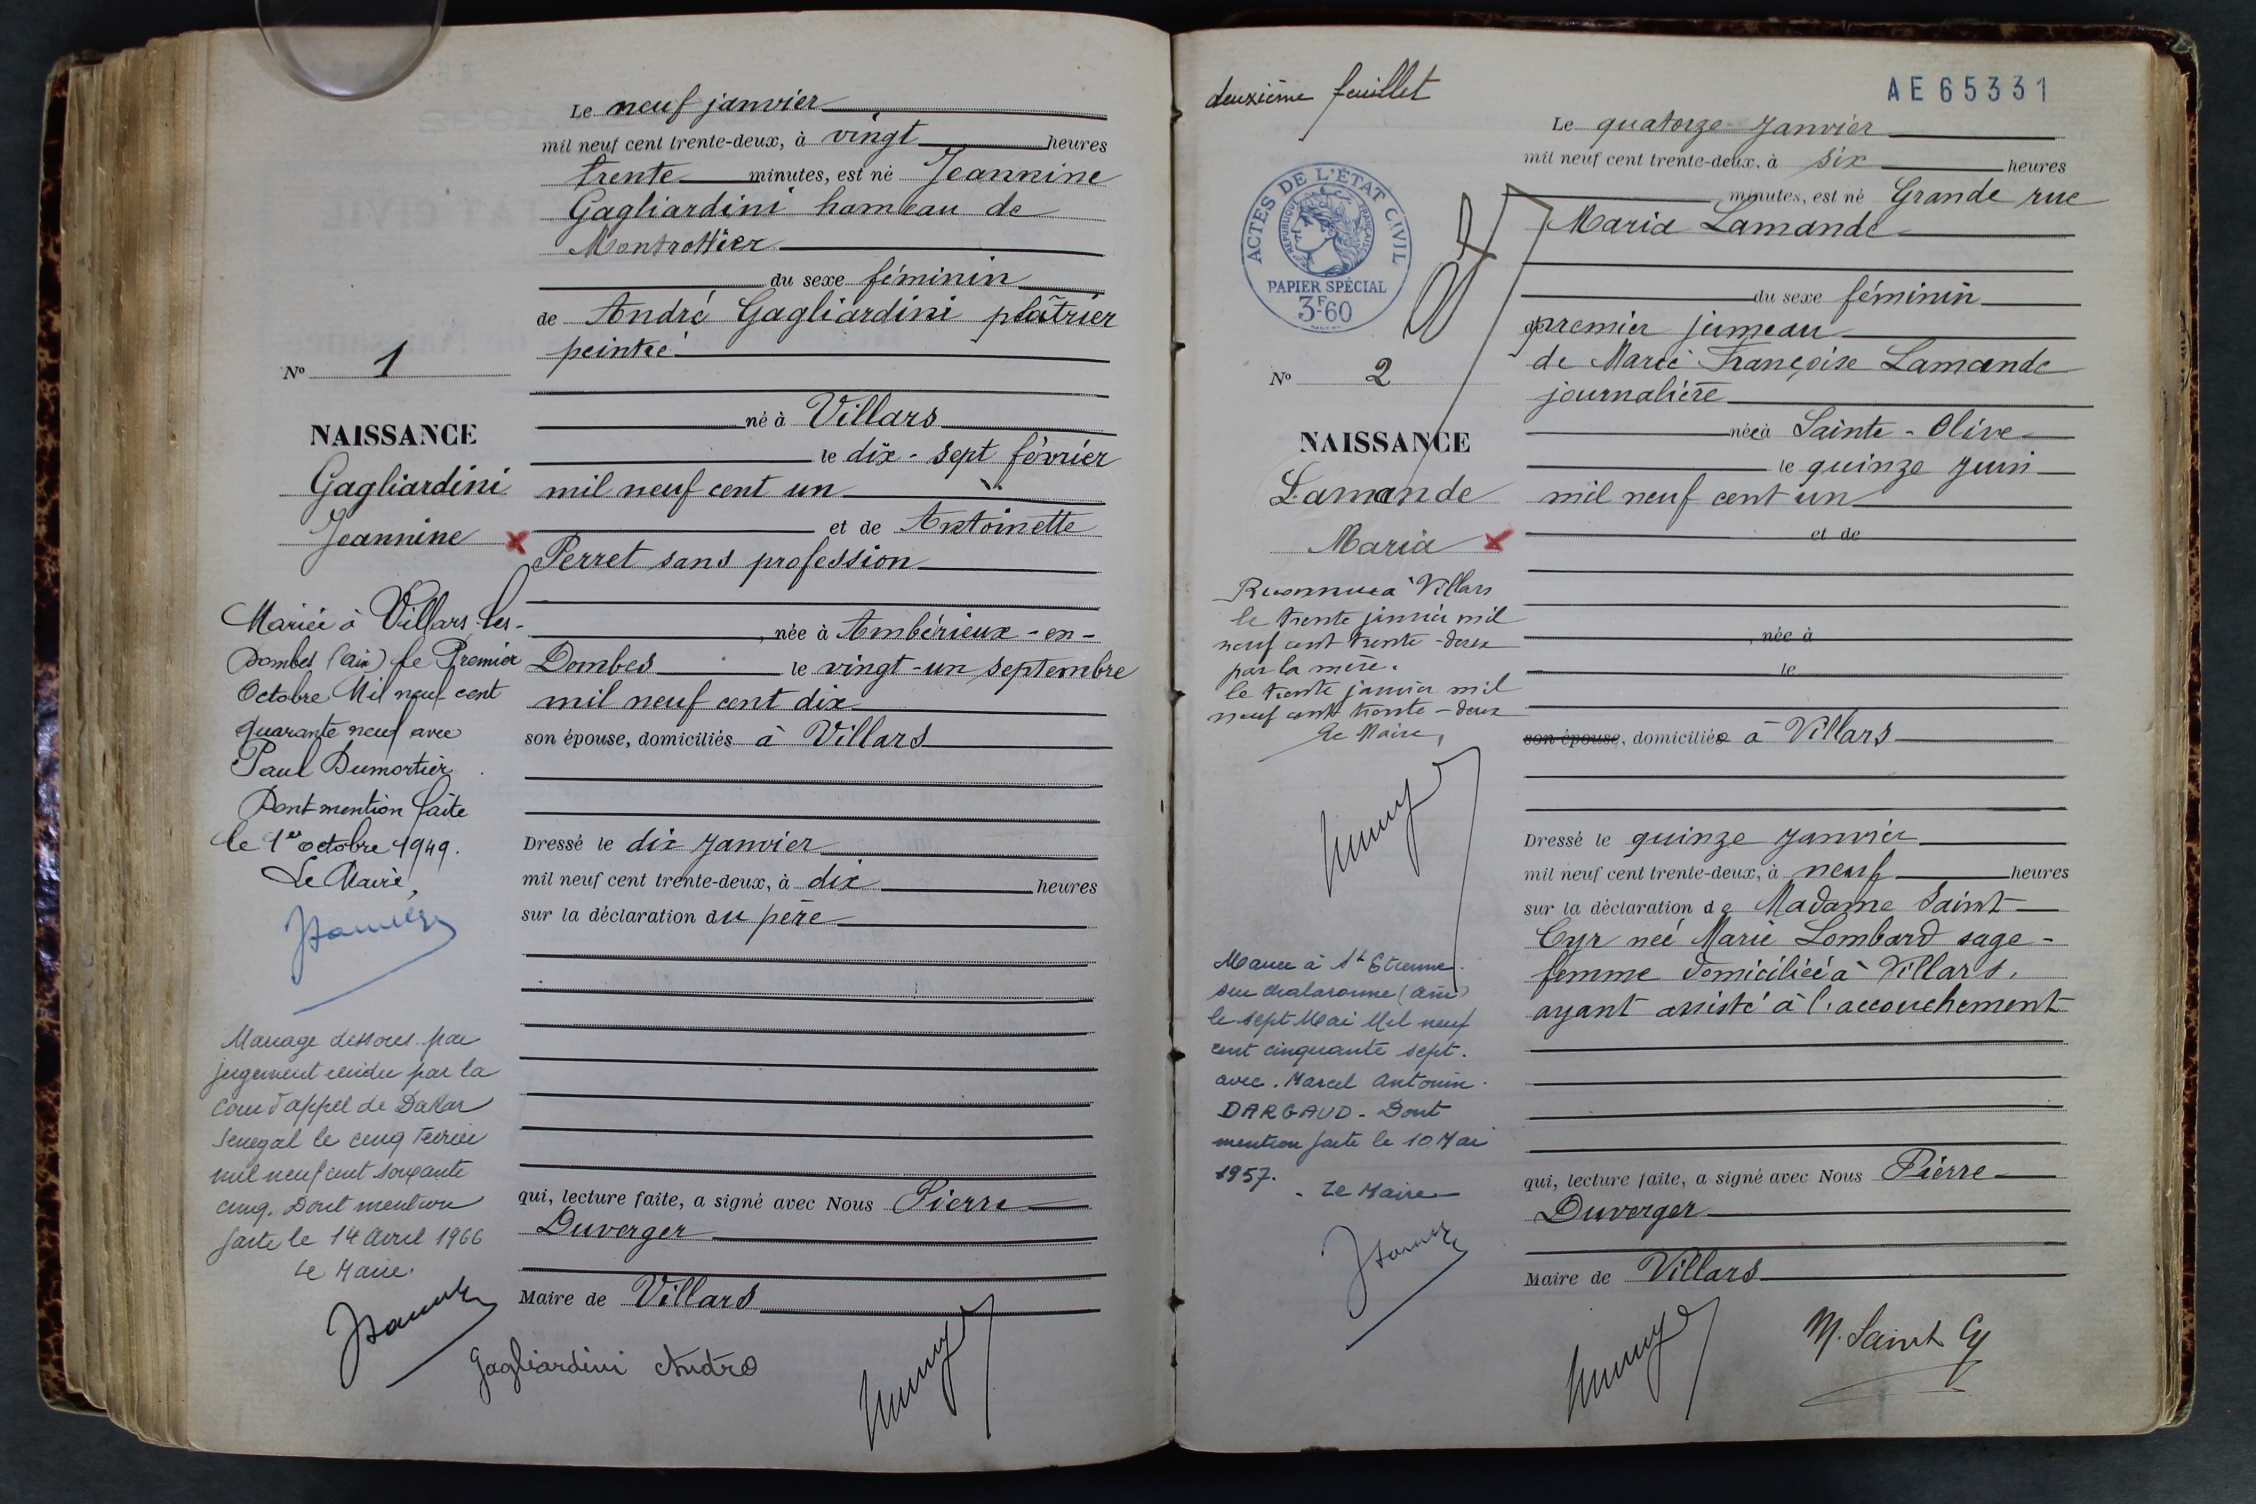 Le neuf janvier
mil neuf cent trente-deux, à vingt heures
trente minutes, est né Jeannine
Gagliardini hameau de
Montrottier
du sexe féminin
de André Gagliardini plâtrier
peintre
né à Villars
le dix-sept février
mil neuf cent un
et de Antoinette
Perret sans profession
, née à Ambérieux-en-
Dombes le vingt-un septembre
mil neuf cent dix
son épouse, domiciliés à Villars
Dressé le dix janvier
mil neuf cent trente-deux, à dix heures
sur la déclaration du père
qui, lecture faite, a signé avec Nous Pierre
Duverger
Maire de Villars
Gagliardini André
No 1
NAISSANCE
Gagliardini
Jeannine
Mariée à Villars les-
Dombes (Ain) le Premier
Octobre Mil neuf cent
quarante neuf avec
Paul Dumortier
Dont mention faite
le 1er octobre 1949.
Le Maire,
Mariage dissous par
jugement rendu par la
Cour d'appel de Dakar
Senegal le cinq fevrier
mil neuf cent soixante
cinq. Dont mention
faite le 14 Avril 1966
Le Maire.
deuxième feuillet
AE65331
ACTES DE L'ÉTAT CIVIL
RÉPUBLIQUE FRANÇAISE
PAPIER SPÉCIAL
3F60
No 2
NAISSANCE
Lamande
Maria
Reconnue à Villars
le trente janvier mil
neuf cent trente-deux
par la mère.
le trente janvier mil
neuf cent trente-deux
Le Maire,
Mariée à St Etienne
sur chalaronne (Ain)
le sept Mai Mil neuf
cent cinquante sept.
avec. Marcel Antonin.
DARGAUD - Dont
mention faite le 10 Mai
1957.
Le Maire
Le quatorze janvier
mil neuf cent trente-deux, à six heures
minutes, est né Grande rue
Maria Lamande
du sexe féminin
de premier jumeau
de Marie Françoise Lamande
journalière
née à Sainte-Olive
le quinze juin
mil neuf cent un
et de
, née à
le
son épouse, domiciliée à Villars
Dressé le quinze janvier
mil neuf cent trente-deux, à neuf heures
sur la déclaration de Madame Saint
Cyr née Marie Lombard sage-
femme domiciliée à Villars,
ayant assisté à l'accouchement
qui, lecture faite, a signé avec Nous Pierre
Duverger
Maire de Villars
M. Saint Cyr